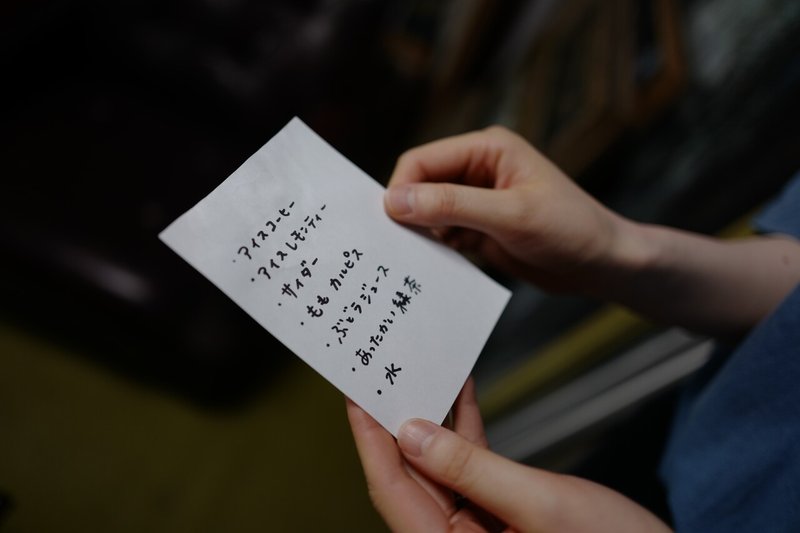 ・アイスコーヒー
・アイスレモンティー
・サイダー
・ももカルピス
・ぶどうジュース
・あったかい緑茶
・水